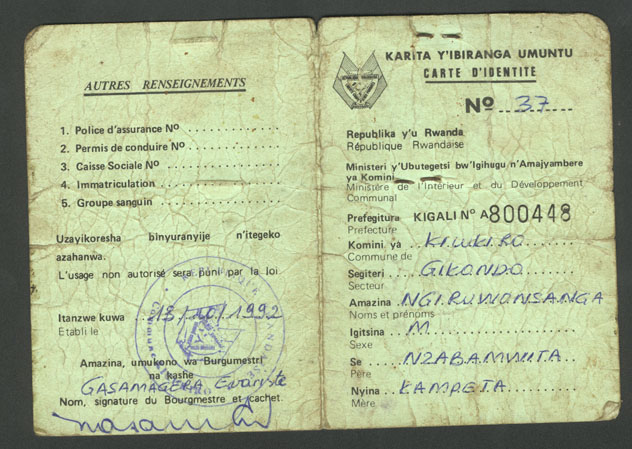 AUTRES RENSEIGNEMENTS
1. Police d'assurance Nº
2. Permis de conduire Nº
3. Caisse Sociale Nº
4. Immatriculation
5. Groupe sanguin
Uzayikoresha binyuranyije n'itegeko
azahanwa.
L'usage non autorisé sera puni par la loi
Itanzwe kuwa 13/10/1992
Etabli le
Amazina, umukono wa Burgumestri
na kashe
GASAMAGERA Evariste
Nom, signature du Bourgmestre et cachet
KARITA Y'IBIRANGA UMUNTU
CARTE D'IDENTITE
Nº 37
Republika y'u Rwanda
République Rwandaise
Ministeri y'Ubutegetsi bw'Igihugu n'Amajyambere
ya Komini
Ministère de l'Intérieur et du Développement
Communal
Prefegitura KIGALI Nº A800448
Prefecture
Komini ya KICUKIRO
Commune de
Segiteri GIKONDO
Secteur
Amazina NGIRUWONSANGA
Noms et prénoms
Igitsina M
Sexe
Se NZABAMWITA
Père
Nyina KAMPETA
Mère